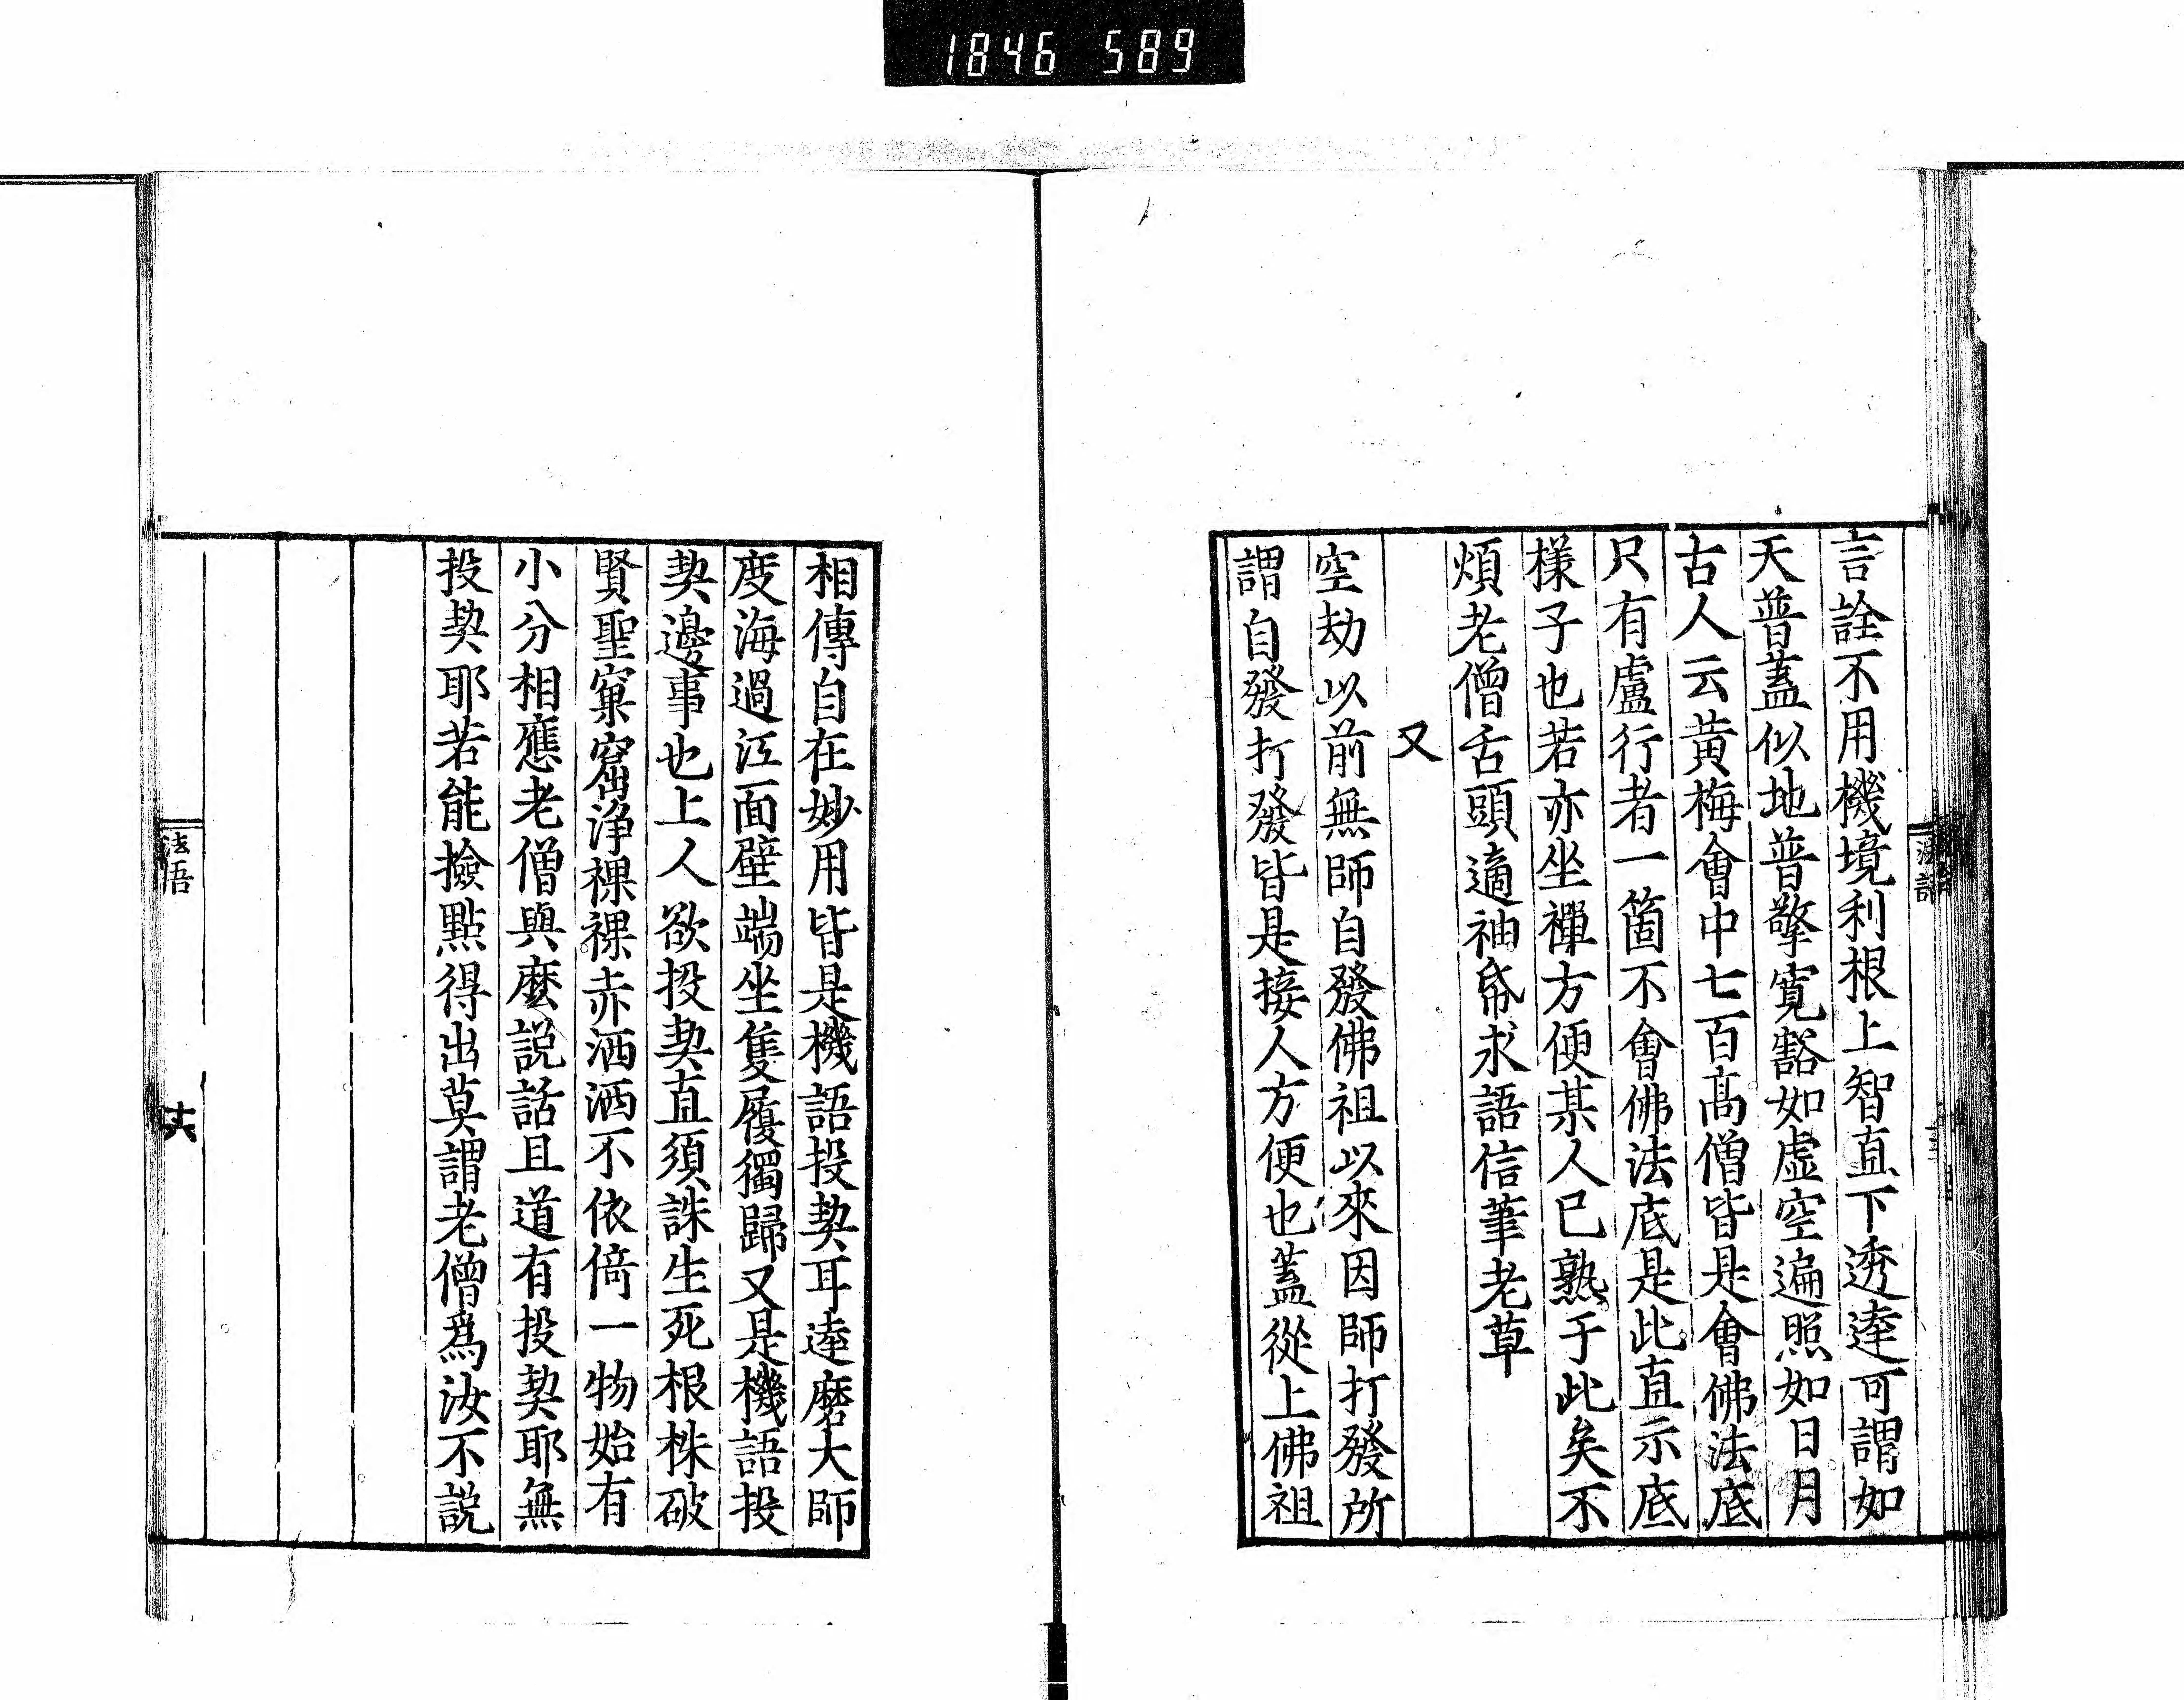 1846 589
言詮不用機境利根上智直下透達可謂如
天普蓋似地普擎寬豁如虛空遍照如日月
古人云黃梅會中七百高僧皆是會佛法底
只有盧行者一箇不會佛法底是此直示底
樣子也若亦坐禪方便某人已熟于此矣不
煩老僧舌頭適袖帋求語信筆老草
又
空劫以前無師自發佛祖以來因師打發所
謂自發打發皆是接人方便也蓋從上佛祖
相傳自在妙用皆是機語投契耳達磨大師
度海過江面壁端坐隻履獨歸又是機語投
契邊事也上人欲投契直須誅生死根株破
賢聖窠窟淨裸裸赤洒洒不依倚一物始有
小分相應老僧與麼説話且道有投契耶無
投契耶若能撿點得出莫謂老僧爲汝不説
法語